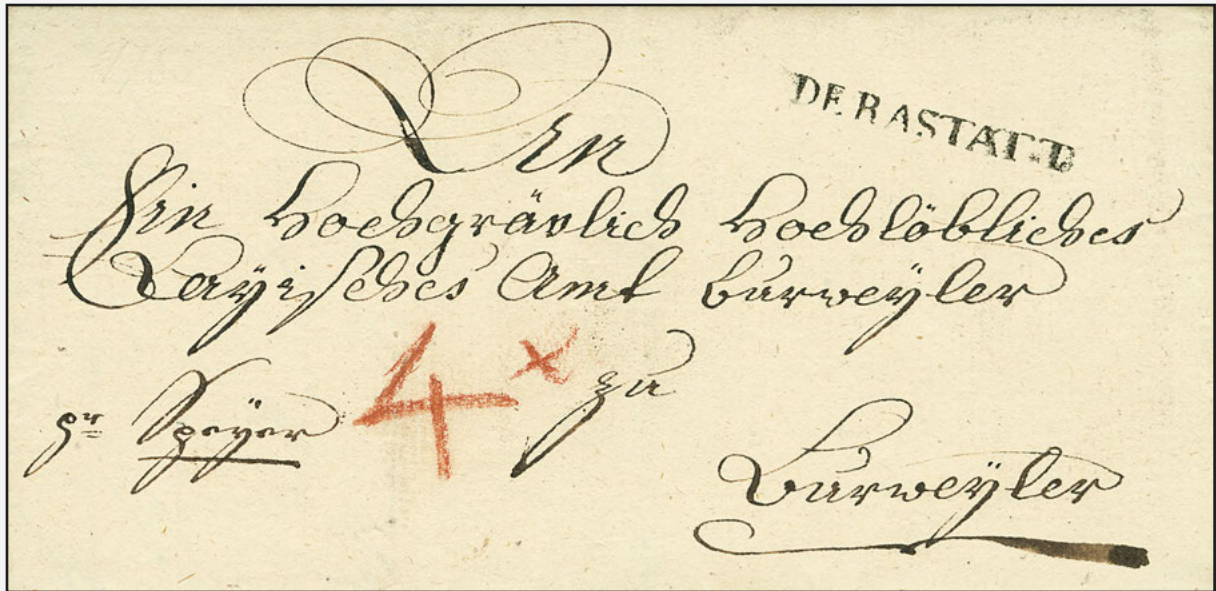 DE RASTATT
An
Ein Hochgrävlich Hochlöbliches
Layisches Amt Burweyler
4x zu
pr Speyer
Burweyler